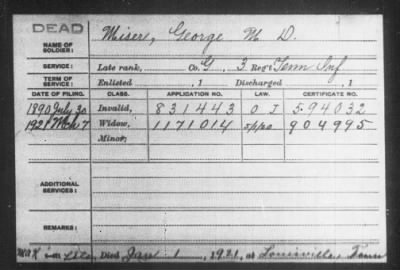 DEAD
NAME OF SOLDIER: Miser, George M D.
SERVICE: Late rank, Co. G, 3 Reg't Tenn Inf
TERM OF SERVICE: Enlisted , 1 Discharged , 1
DATE OF FILING. CLASS. APPLICATION NO. LAW. CERTIFICATE NO.
1890 July 30 Invalid, 831443 594032
1921 Mch 7 Widow, 1171014 904995
Minor,
ADDITIONAL SERVICES:
REMARKS:
Died Jan 1, 1921, at Louisville Tenn